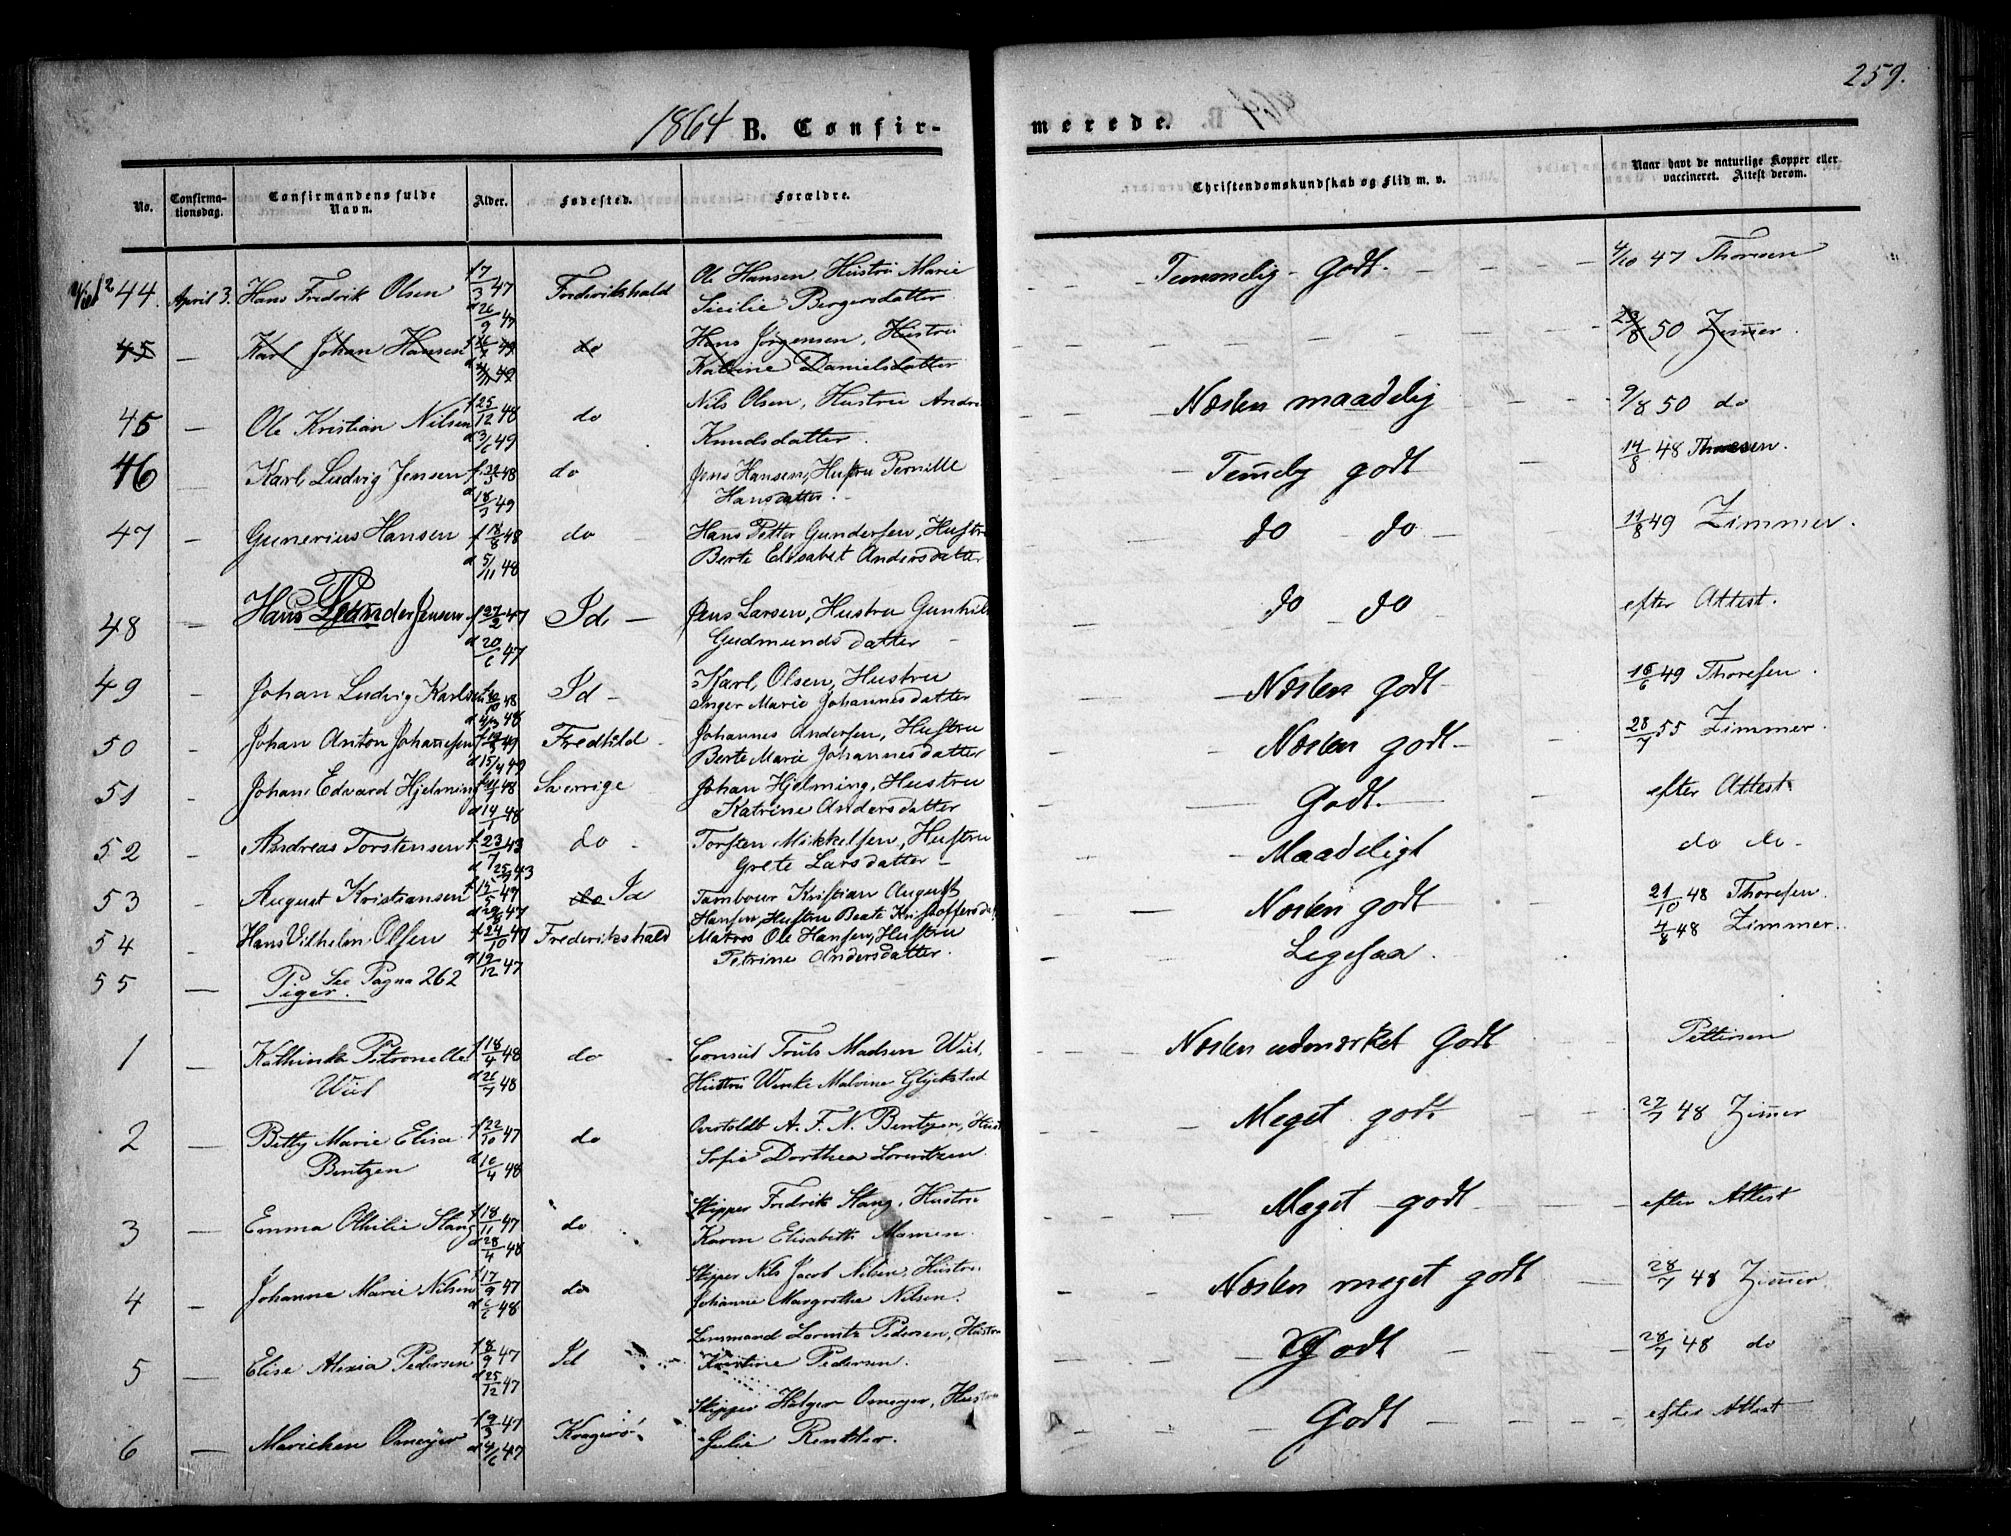 259.
1864 B. Confir- merede.
No. Confirma-tionsdag. Confirmandens fulde Navn. Alder. Fødested. Forældre. Christendomskundskab og Flid m. v. Naar havt de naturlige Kopper eller vaccineret. Attest derom.
44. April 3. Hans Fredrik Olsen f 17/3 47 Frederikshald Ole Hansen, Hustru Marie Temmelig - Godt. 4/10 47 Thoresen
d 26/9 47 Sicilie Bergersdatter
45 — Karl Johan Hansen 49 do Hans Jørgensen, Hustru 23/8 50 Zimer.
49 Katrine Danielsdatter
45 — Ole Kristian Nilsen f 25/12 48 do Nils Olsen, Hustru Andre Næsten maadelig 9/8 50 do
d 3/6 49 Knudsdatter.
46 — Karl Ludvig Jensen 48 do Jens Hansen, Hustru Pernille Temelig godt 14/8 48 Thoresen.
d 18/3 49 Hansdatter.
47 — Gunerius Hansen f 18/8 48 do Hans Petter Gundersen, Hustru do do 11/8 49 Zimmer.
d 5/11 48 Berte Elisabet Andersdatter
48 — Hans Leander Jensen f 27/2 47 Id — Jens Larsen, Hustru Gunhild do do efter Attest.
d 20/6 47 Gudmundsdatter
49 — Johan Ludvig Karlsen 48 Id — Karl Olsen, Hustru Næsten Godt 16/6 49 Thoresen.
48 Inger Marie Johannesdatter
50 — Johan Anton Johannesen 49 Fredhld Johannes Andersen, Hustru Næsten godt 28/7 55 Zimmer.
d 15/4 49 Berte Marie Johannesdatter
51 — Johan Edvard Hjelming 48 Sverrige Johan Hjelming, Hustru Godt. efter Attest
d 14/1 48 Katrine Andersdatter
52 — Andreas Torstensen f 23/7 43 do Torsten Mikkelsen, Hustru Maadeligt do do
43 Grete Larsdatter
53 — August Kristiansen f 15/5 47 do Id Tambour Kristian August Næsten godt 21/10 48 Thoresen.
d 29/8 47 Hansen, Hustru Beate Kristoffersdat
54 — Hans Vilhelm Olsen f 24/10 47 Frederikshald Matros Ole Hansen, Hustru Ligesaa. 7/8 48 Zimmer.
d 19/12 47 Petrine Andersdatter.
55 — See Pagna 262
Piger.
1 — Kathinka Petronelle f 18/4 48 do Consul Truls Madsen Wiel, Næsten udmærket Godt Pettersen
Wiel d 26/7 48 Hustru Wenke Malvine Glückstad
2 — Betty Marie Elisa f 22/10 47 do A. F. N. Bentzen, Hust Meget godt 27/7 48 Zimer
Bentzen d 16/4 48 Sofie Dorthea Lorentzen
3 — Emma Othilie Stang f 18/11 47 do Skipper Fredrik Stang, Hustru Meget godt efter Attest
d 28/4 48 Karen Elisabeth Mamen.
4 — Johanne Marie Nilsen f 17/9 47 do Skipper Nils Jacob Nilsen, Hustru Næsten meget godt 28/7 48 Zimer
48 Johanne Margrethe Nilsen.
5 — Elise Alexia Pedersen f 8/9 47 Id Lensmand Lorentz Pedersen, Hustru Godt 28/7 48 do
d 25/12 47 Kristine Pedersen.
6 — Marichen Omeyer f 9/3 47 Kragerø Skipper Holger Omeyer, Hustru Godt efter Attest
d 4/6 47 Julie Rentzler.